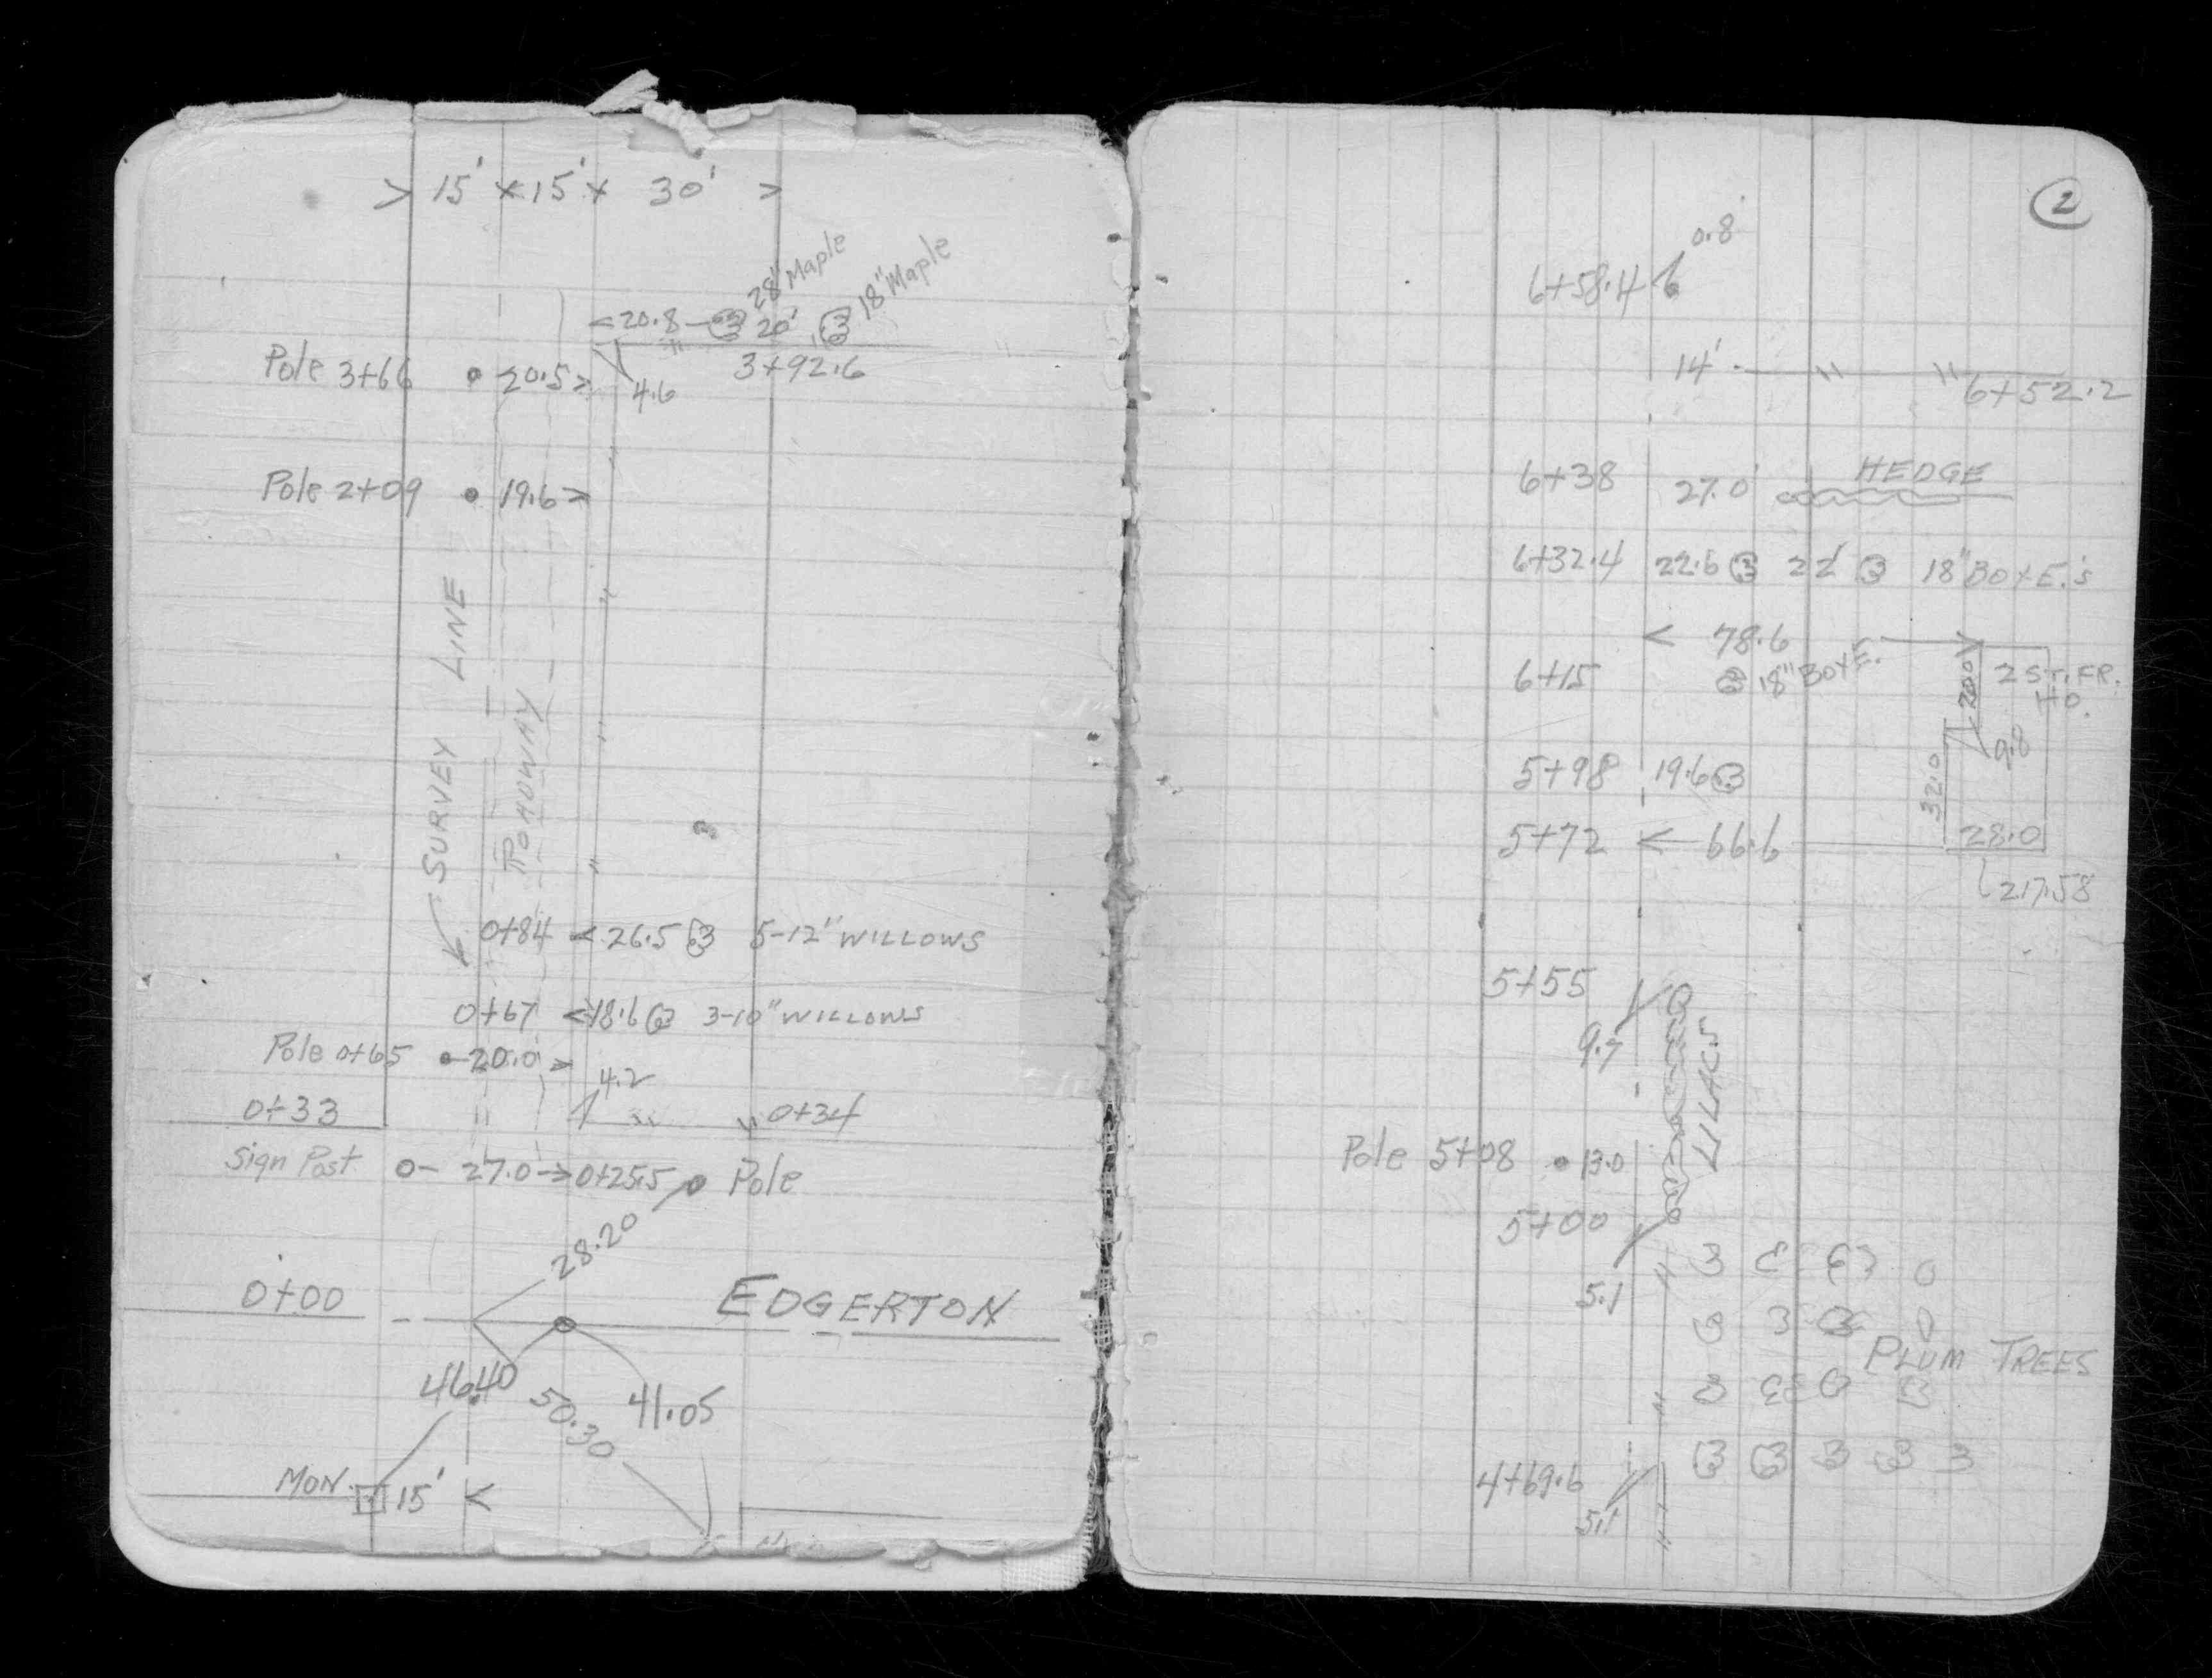 > 15' × 15' × 30' >
28" Maple
18" Maple
<20.8 20'
Pole 3+66 <20.5> 4.6 3+92.6
Pole 2+09 19.6>
SURVEY LINE
ROADWAY
0+84 <26.5 5-12" WILLOWS
0+67 <18.6 3-10" WILLOWS
Pole 0+65 20.0>
4.2
0+33 0+34
Sign Post 27.0→0+25.5 Pole
28.20
0+00 EDGERTON
46.40 50.30 41.05
MON. 15' <
2
0.8'
6+58.4
14'
6+52.2
6+38 27.0' HEDGE
6+32.4 22.6 22' 18" BOX E.'s
< 78.6
6+15 18" BOX E. 20.0 2 ST. FR. HO.
9.8
5+98 19.6 32.0
5+72 < 66.6 28.0
217.58
5+55
9.7
LILACS
Pole 5+08 13.0
5+00
5.1
PLUM TREES
4+69.6
5.1